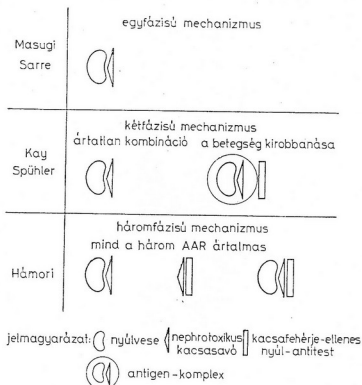 egyfázisú mechanizmus
Masugi
Sarre
kétfázisú mechanizmus
ártatlan kombináció a betegség kirobbanása
Kay
Spühler
háromfázisú mechanizmus
mind a három AAR ártalmas
Hámori
jelmagyarázat: nyúlvese nephrotoxikus kacsasavó kacsafehérje-ellenes nyúl-antitest
antigen-komplex